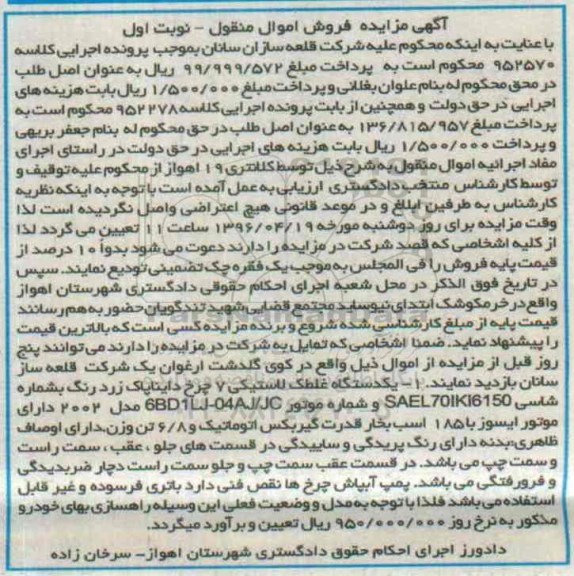 آگهی مزایده فروش اموال منقول - نوبت اول
با عنایت به اینکه محکوم علیه شرکت قلعه سازان سانان بموجب پرونده اجرایی کلاسه
۹۵۲۵۷۰ محکوم است به پرداخت مبلغ ۹۹/۹۹۹/۵۷۲ ریال به عنوان اصل طلب
در محق محکوم له بنام علوان بغلانی و پرداخت مبلغ ۱/۵۰۰/۰۰۰ ریال بابت هزینه های
اجرایی در حق دولت و همچنین از بابت پرونده اجرایی کلاسه ۹۵۲۲۷۸ محکوم است به
پرداخت مبلغ ۱۳۶/۸۱۵/۹۵۷ به عنوان اصل طلب در حق محکوم له بنام جعفر بریهی
و پرداخت ۱/۵۰۰/۰۰۰ ریال بابت هزینه های اجرایی در حق دولت در راستای اجرای
مفاد اجرائیه اموال منقول به شرح ذیل توسط کلانتری ۱۹ اهواز از محکوم علیه توقیف و
توسط کارشناس منتخب دادگستری ارزیابی به عمل آمده است با توجه به اینکه نظریه
کارشناس به طرفین ابلاغ و در موعد قانونی هیچ اعتراضی واصل نگردیده است لذا
وقت مزایده برای روز دوشنبه مورخه ۱۳۹۶/۰۴/۱۹ ساعت ۱۱ تعیین می گردد لذا
از کلیه اشخاصی که قصد شرکت در مزایده را دارند دعوت می شود بدواً ۱۰ درصد از
قیمت پایه فروش را فی المجلس به موجب یک فقره چک تضمینی تودیع نمایند. سپس
در تاریخ فوق الذکر در محل شعبه اجرای احکام حقوقی دادگستری شهرستان اهواز
واقع در خرمکوشک ابتدای نیوساید مجتمع قضایی شهید تندگویان حضور به هم رسانند
قیمت پایه از مبلغ کارشناسی شده شروع و برنده مزایده کسی است که بالاترین قیمت
را پیشنهاد نماید. ضمنا اشخاصی که تمایل به شرکت در مزایده را دارند می توانند پنج
روز قبل از مزایده از اموال ذیل واقع در کوی گلدشت ارغوان یک شرکت قلعه ساز
سانان بازدید نمایند. ۱- یکدستگاه غلطک لاستیکی ۷ چرخ دایناپاک زرد رنگ بشماره
شاسی SAEL70IKI6150 و شماره موتور 6BD1-LJ-04AJ/JC مدل ۲۰۰۲ دارای
موتور ایسوز با ۱۸۵ اسب بخار قدرت گیربکس اتوماتیک و ۶/۸ تن وزن.دارای اوصاف
ظاهری:بدنه دارای رنگ پریدگی و ساییدگی در قسمت های جلو ، عقب ، سمت راست
و سمت چپ می باشد. در قسمت عقب سمت چپ و جلو سمت راست دچار ضربدیدگی
و فرورفتگی می باشد. پمپ آبپاش چرخ ها نقص فنی دارد باتری فرسوده و غیر قابل
استفاده می باشد فلذا با توجه به مدل و وضعیت فعلی این وسیله راهسازی بهای خودرو
مذکور به نرخ روز ۹۵۰/۰۰۰/۰۰۰ ریال تعیین و برآورد میگردد.
دادورز اجرای احکام حقوق دادگستری شهرستان اهواز- سرخان زاده